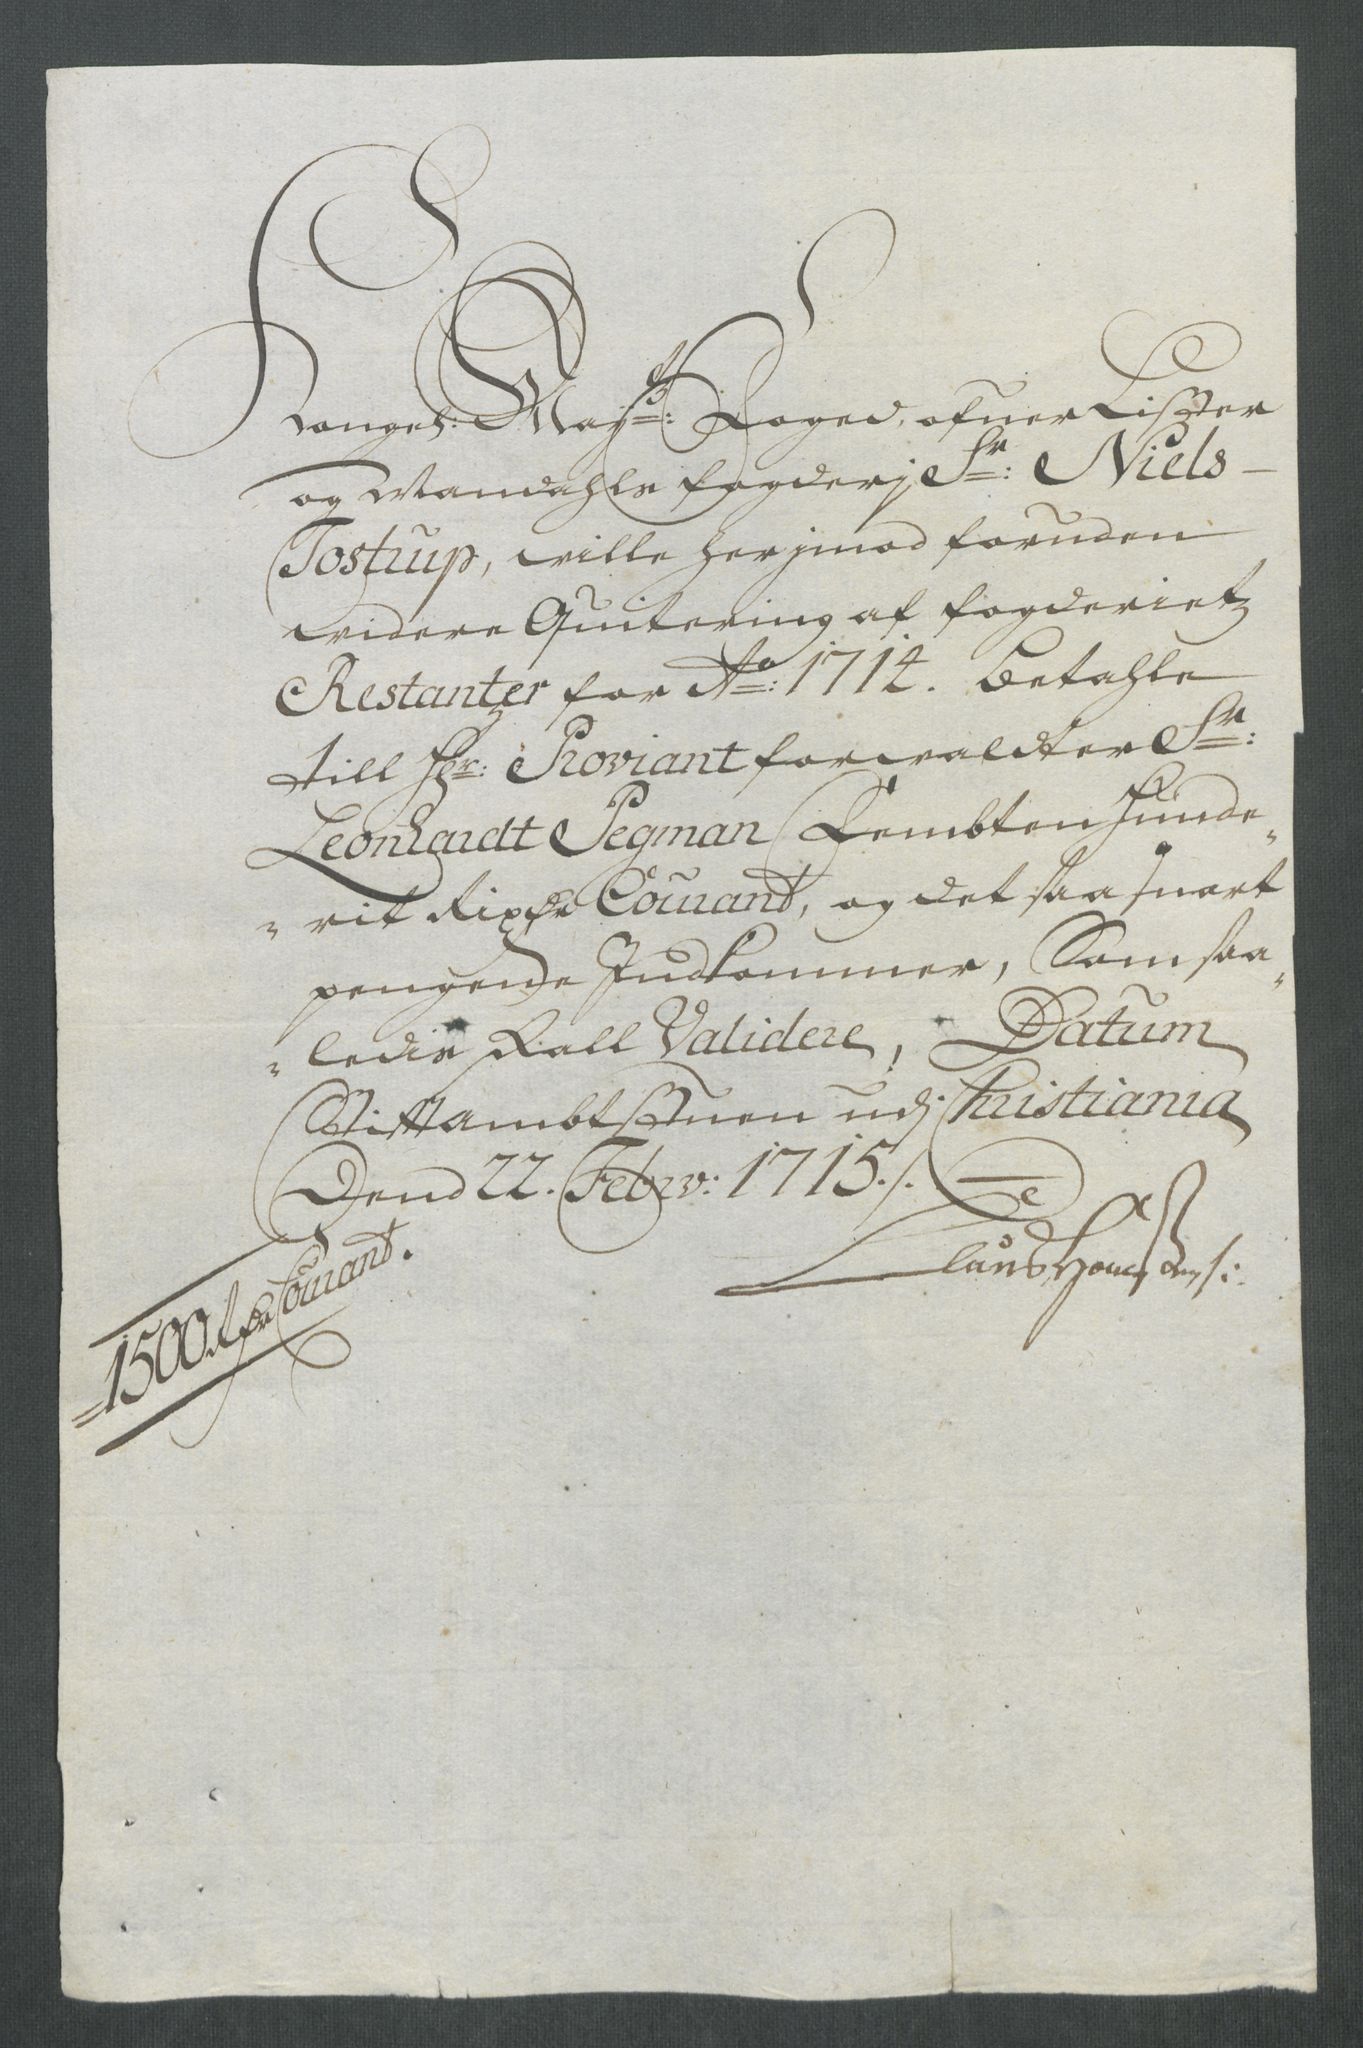 Kongel: May.ts: Foged, ofuer Lister
og Mandahls fogderj Sr: Niels
Tostrup, wille herjmod foruden
widere Quitering af fogderietz
Restantzer for Ao: 1714. betahle
till Hr: Proviantforvaldter Sr:
Leonhardt Pegman Fembten Hunde„
„rit Rixdr Courant, og det saa snart
pengende Indkommer, Som saa„
„ledis skall Validere, Datum
Stittambtstuen udj Christiania
Dend 22. Febrv: 1715./.
Claus
=1500 Rdr Courant.